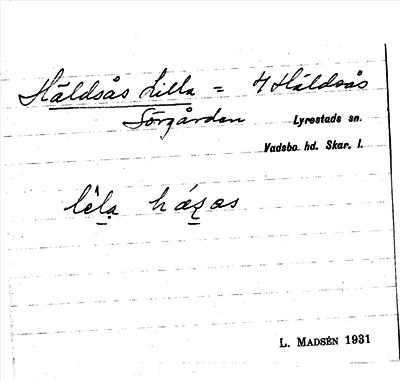 Häldsås Lilla = 4 Häldsås
Sörgården Lyrestads sn.
Vadsbo hd. Skar. l.
L. MADSÉN 1931